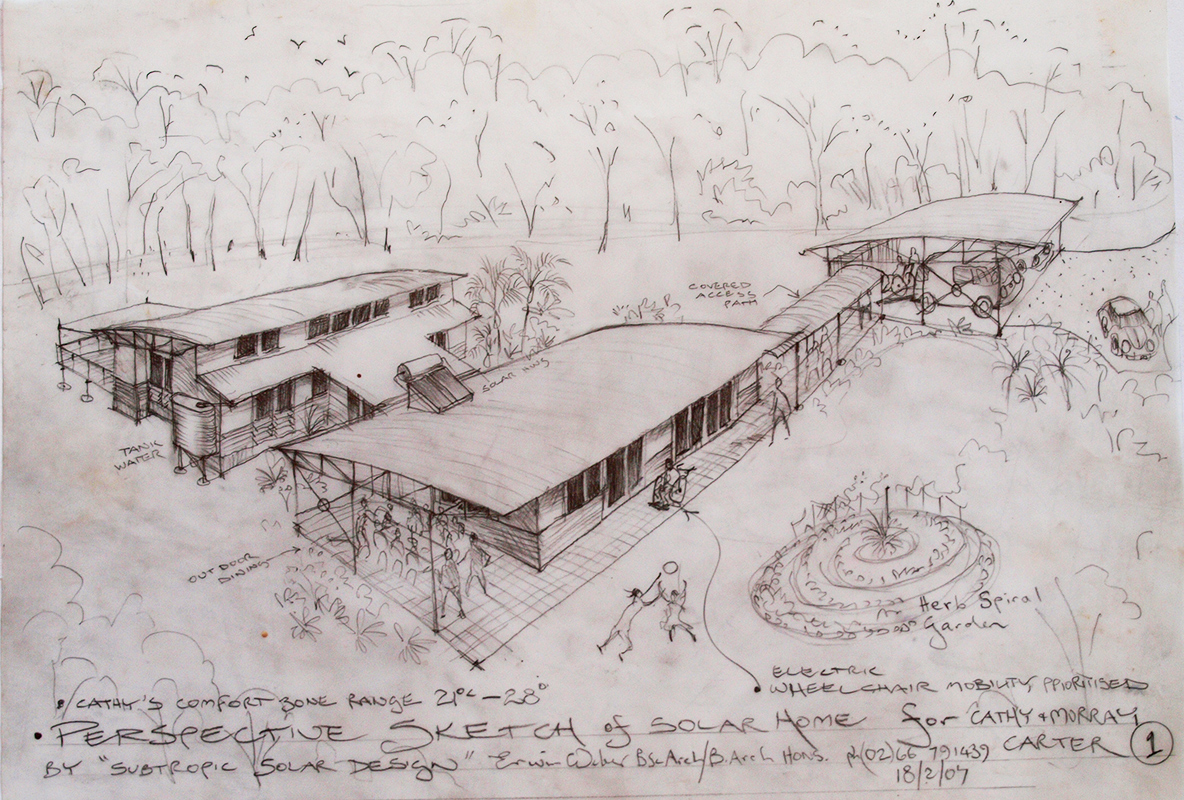 COVERED
ACCESS
PATH
SOLAR HWS
TANK
WATER
OUTDOOR
DINING
Herb Spiral
Garden
ELECTRIC
WHEELCHAIR MOBILITY PRIORITISED
CATHY'S COMFORT ZONE RANGE 21°C – 28°
• PERSPECTIVE SKETCH of SOLAR HOME for CATHY & MORRAY
CARTER 1
BY "SUBTROPIC SOLAR DESIGN" Erwin Weber BSc Arch/B.Arch HONS. ph(02)66 791439
18/2/07